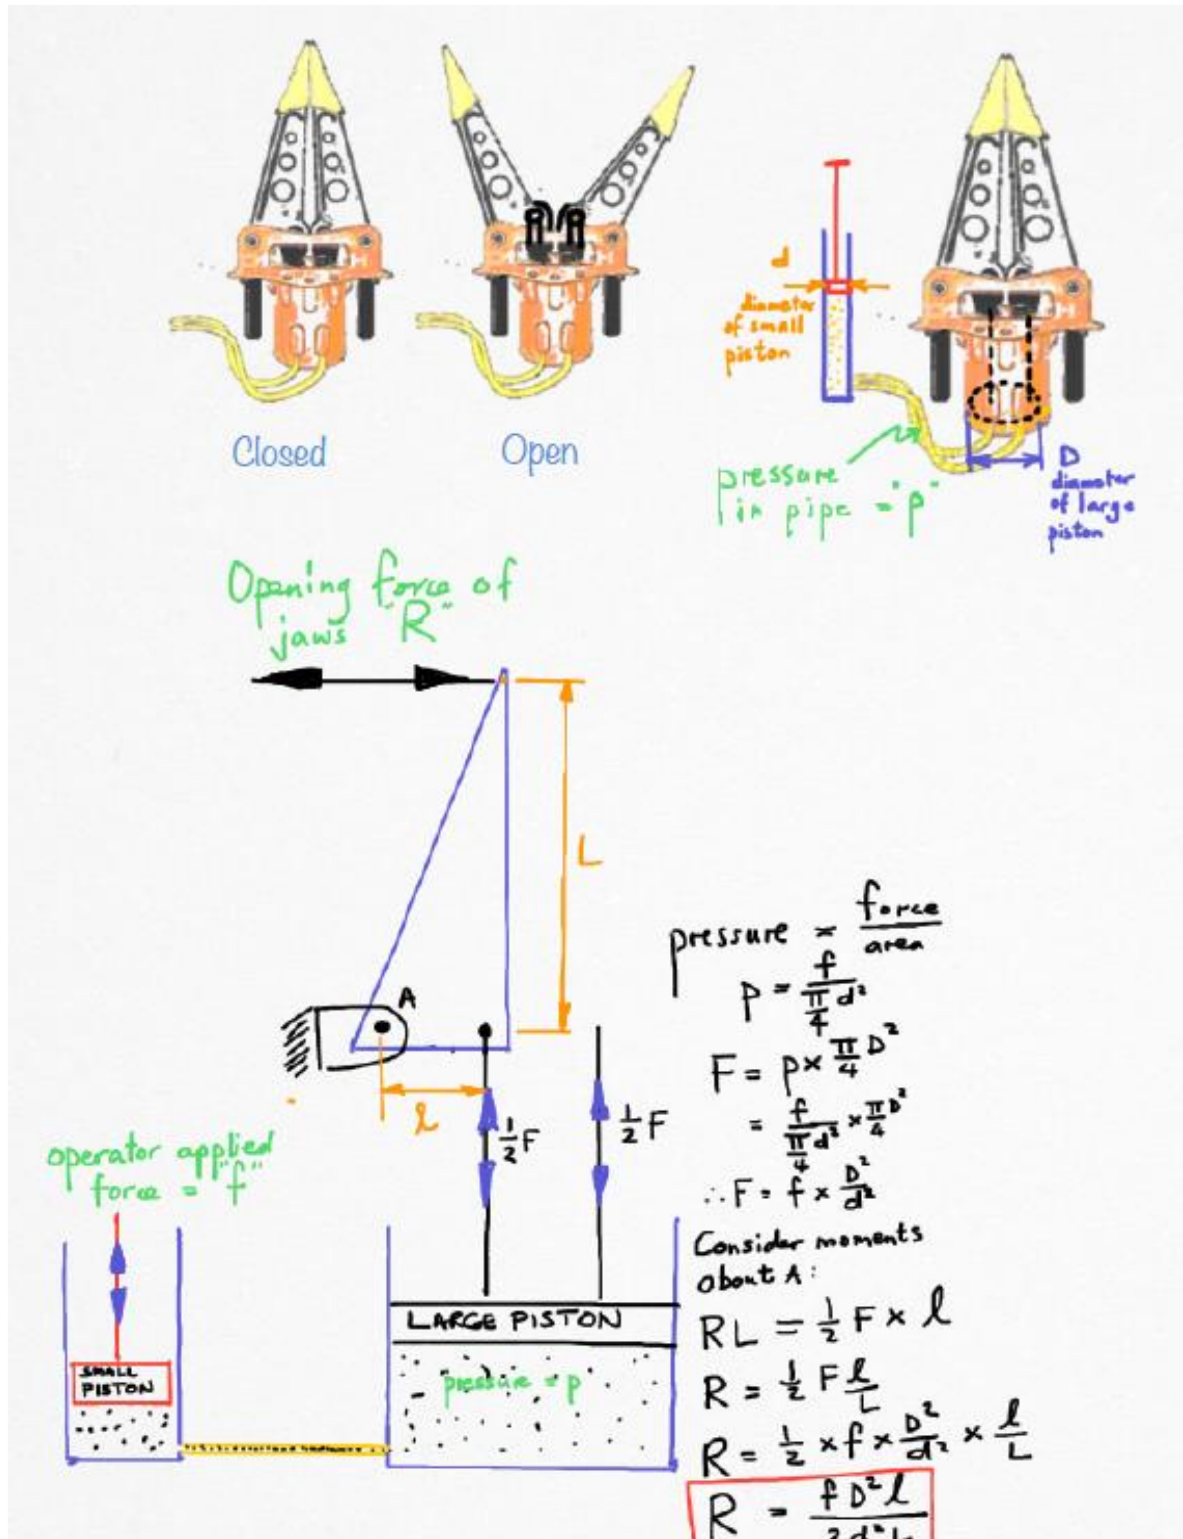 Closed
Open
d
diameter
of small
piston
pressure
in pipe = "p"
D
diameter
of large
piston
Opening force of
jaws "R"
L
A
l
1/2 F
1/2 F
operator applied
force = "f"
SMALL
PISTON
LARGE PISTON
pressure = p
pressure = force/area
p = f/(π/4 d²)
F = p × π/4 D²
= f/(π/4 d²) × π/4 D²
∴ F = f × D²/d²
Consider moments
about A:
RL = 1/2 F × l
R = 1/2 F l/L
R = 1/2 × f × D²/d² × l/L
R = f D² l / 2 d² L